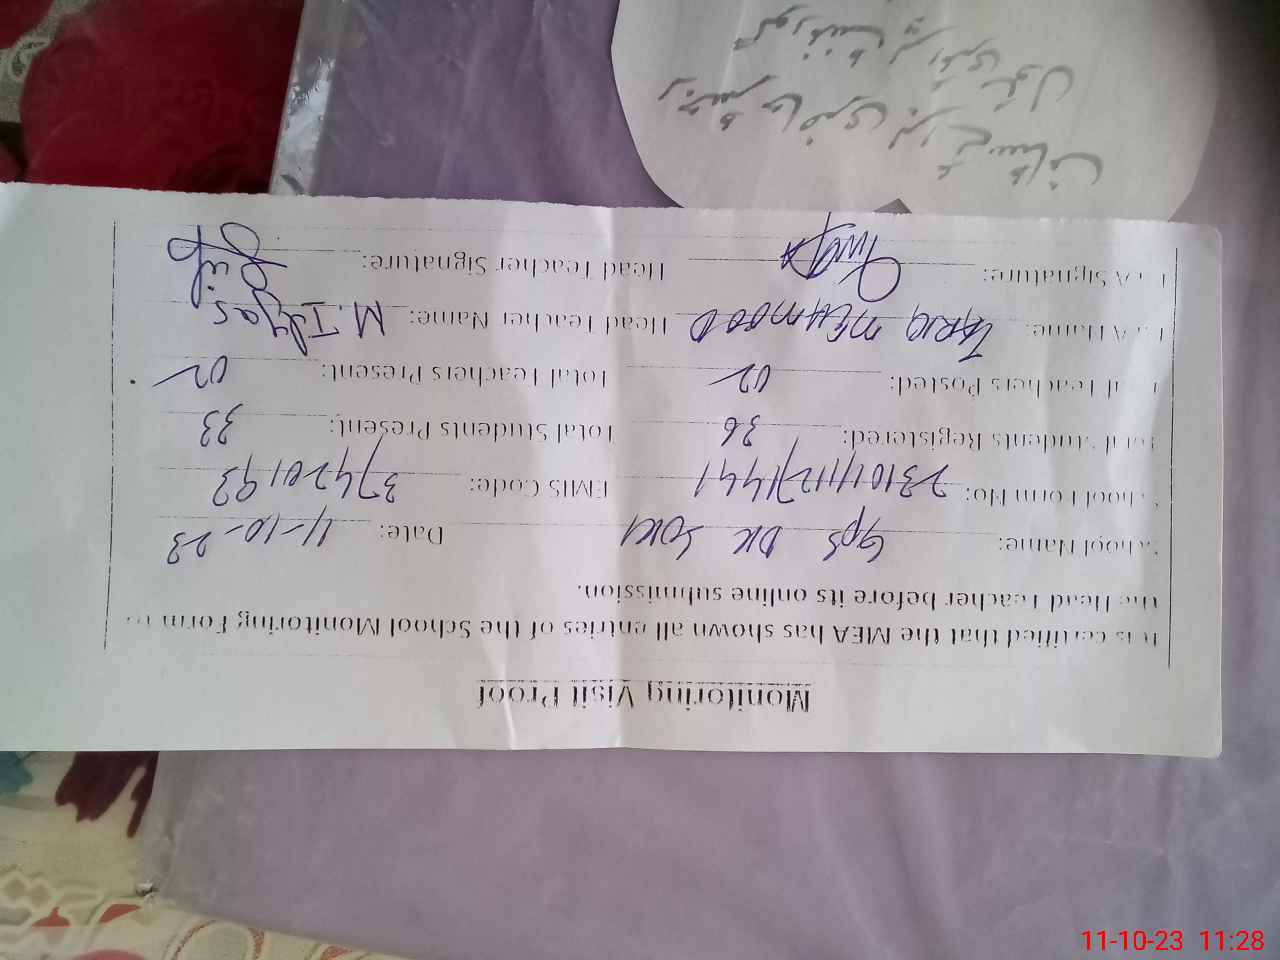 Monitoring Visit Proof
It is certified that the MEA has shown all entries of the School Monitoring Form to
the Head Teacher before its online submission.
School Name: GPS DK SOKI Date: 11-10-23
School Form No: EMIS Code: 37420193
Total Students Registered: 36 Total Students Present: 33
Total Teachers Posted: 02 Total Teachers Present: 02
MEA Name: TARIQ MEHMOOD Head Teacher Name: M. Ilyas
MEA Signature: Head Teacher Signature:
11-10-23 11:28